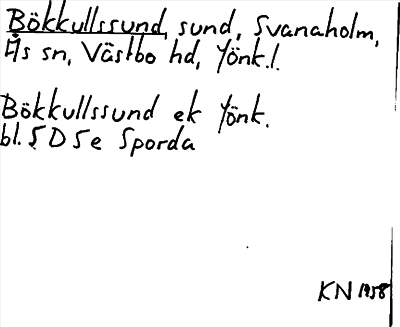 Bökkullssund, sund, Svanaholm,
Ås sn, Västbo hd, Jönk.l.
Bökkullssund ek Jönk.
bl. 5 D 5e Sporda
KN 1958